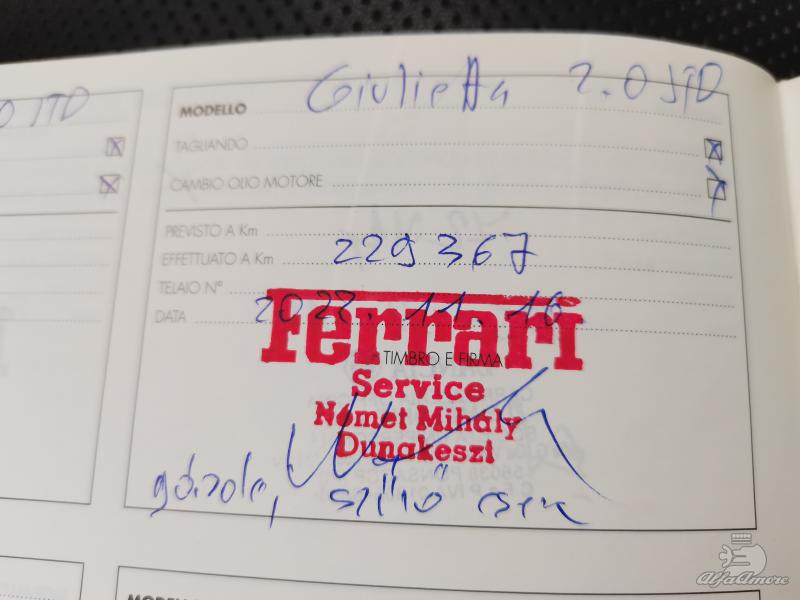 JTD
MODELLO Giulietta 2.0 JTD
TAGLIANDO
CAMBIO OLIO MOTORE
PREVISTO A Km
EFFETTUATO A Km 229367
TELAIO N°
DATA 2022.11.16
Ferrari
TIMBRO E FIRMA
Service
Német Mihály
Dunakeszi
szűrő csere
MODELLO
AlfaAmore